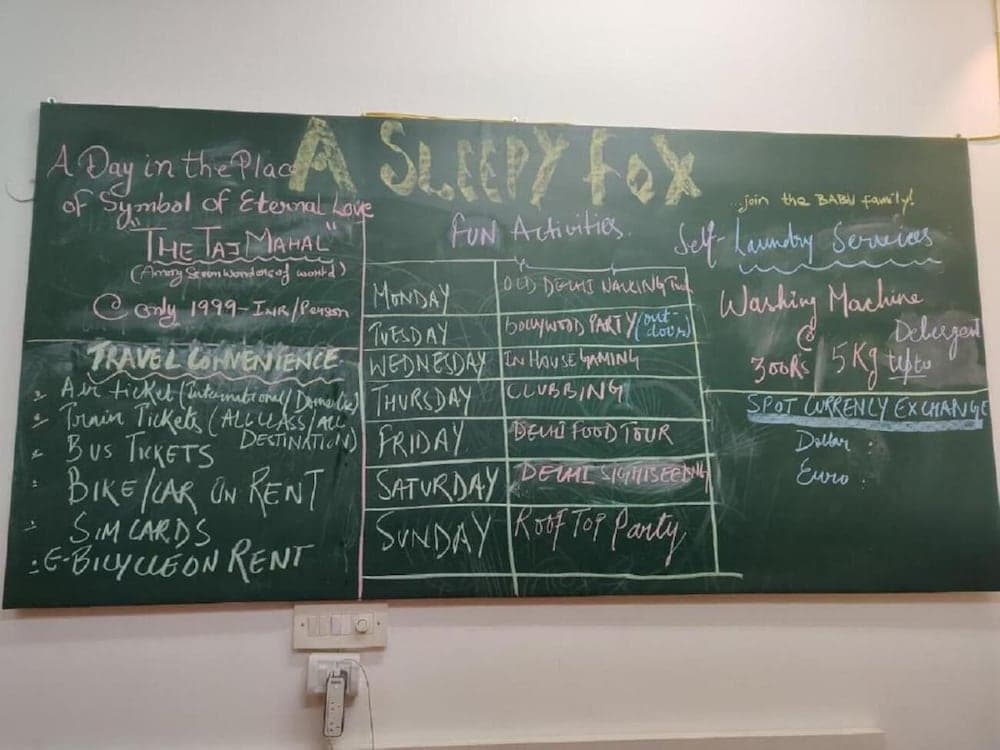 A SLEEPY FOX
A Day in the Place
of Symbol of Eternal Love
"THE TAJ MAHAL"
(Among Seven wonders of world)
@ only 1999- INR/Person
TRAVEL CONVENIENCE
- Air ticket (International/Domestic)
- Train Tickets (ALL CLASS/ALL
DESTINATION)
- BUS TICKETS
- BIKE/CAR ON RENT
- SIM CARDS
- E-BICYCLE ON RENT
FUN Activities
MONDAY OLD DELHI WALKING Tour
TUESDAY BOLLYWOOD PARTY (out-
doors)
WEDNESDAY IN HOUSE GAMING
THURSDAY CLUBBING
FRIDAY DELHI FOOD TOUR
SATURDAY DELHI SIGHTSEEING
SUNDAY ROOF TOP Party
...join the BABU family!
Self- Laundry Services
Washing Machine
@ Detergent
300Rs 5Kg upto
SPOT CURRENCY EXCHANGE
Dollar :
Euro :